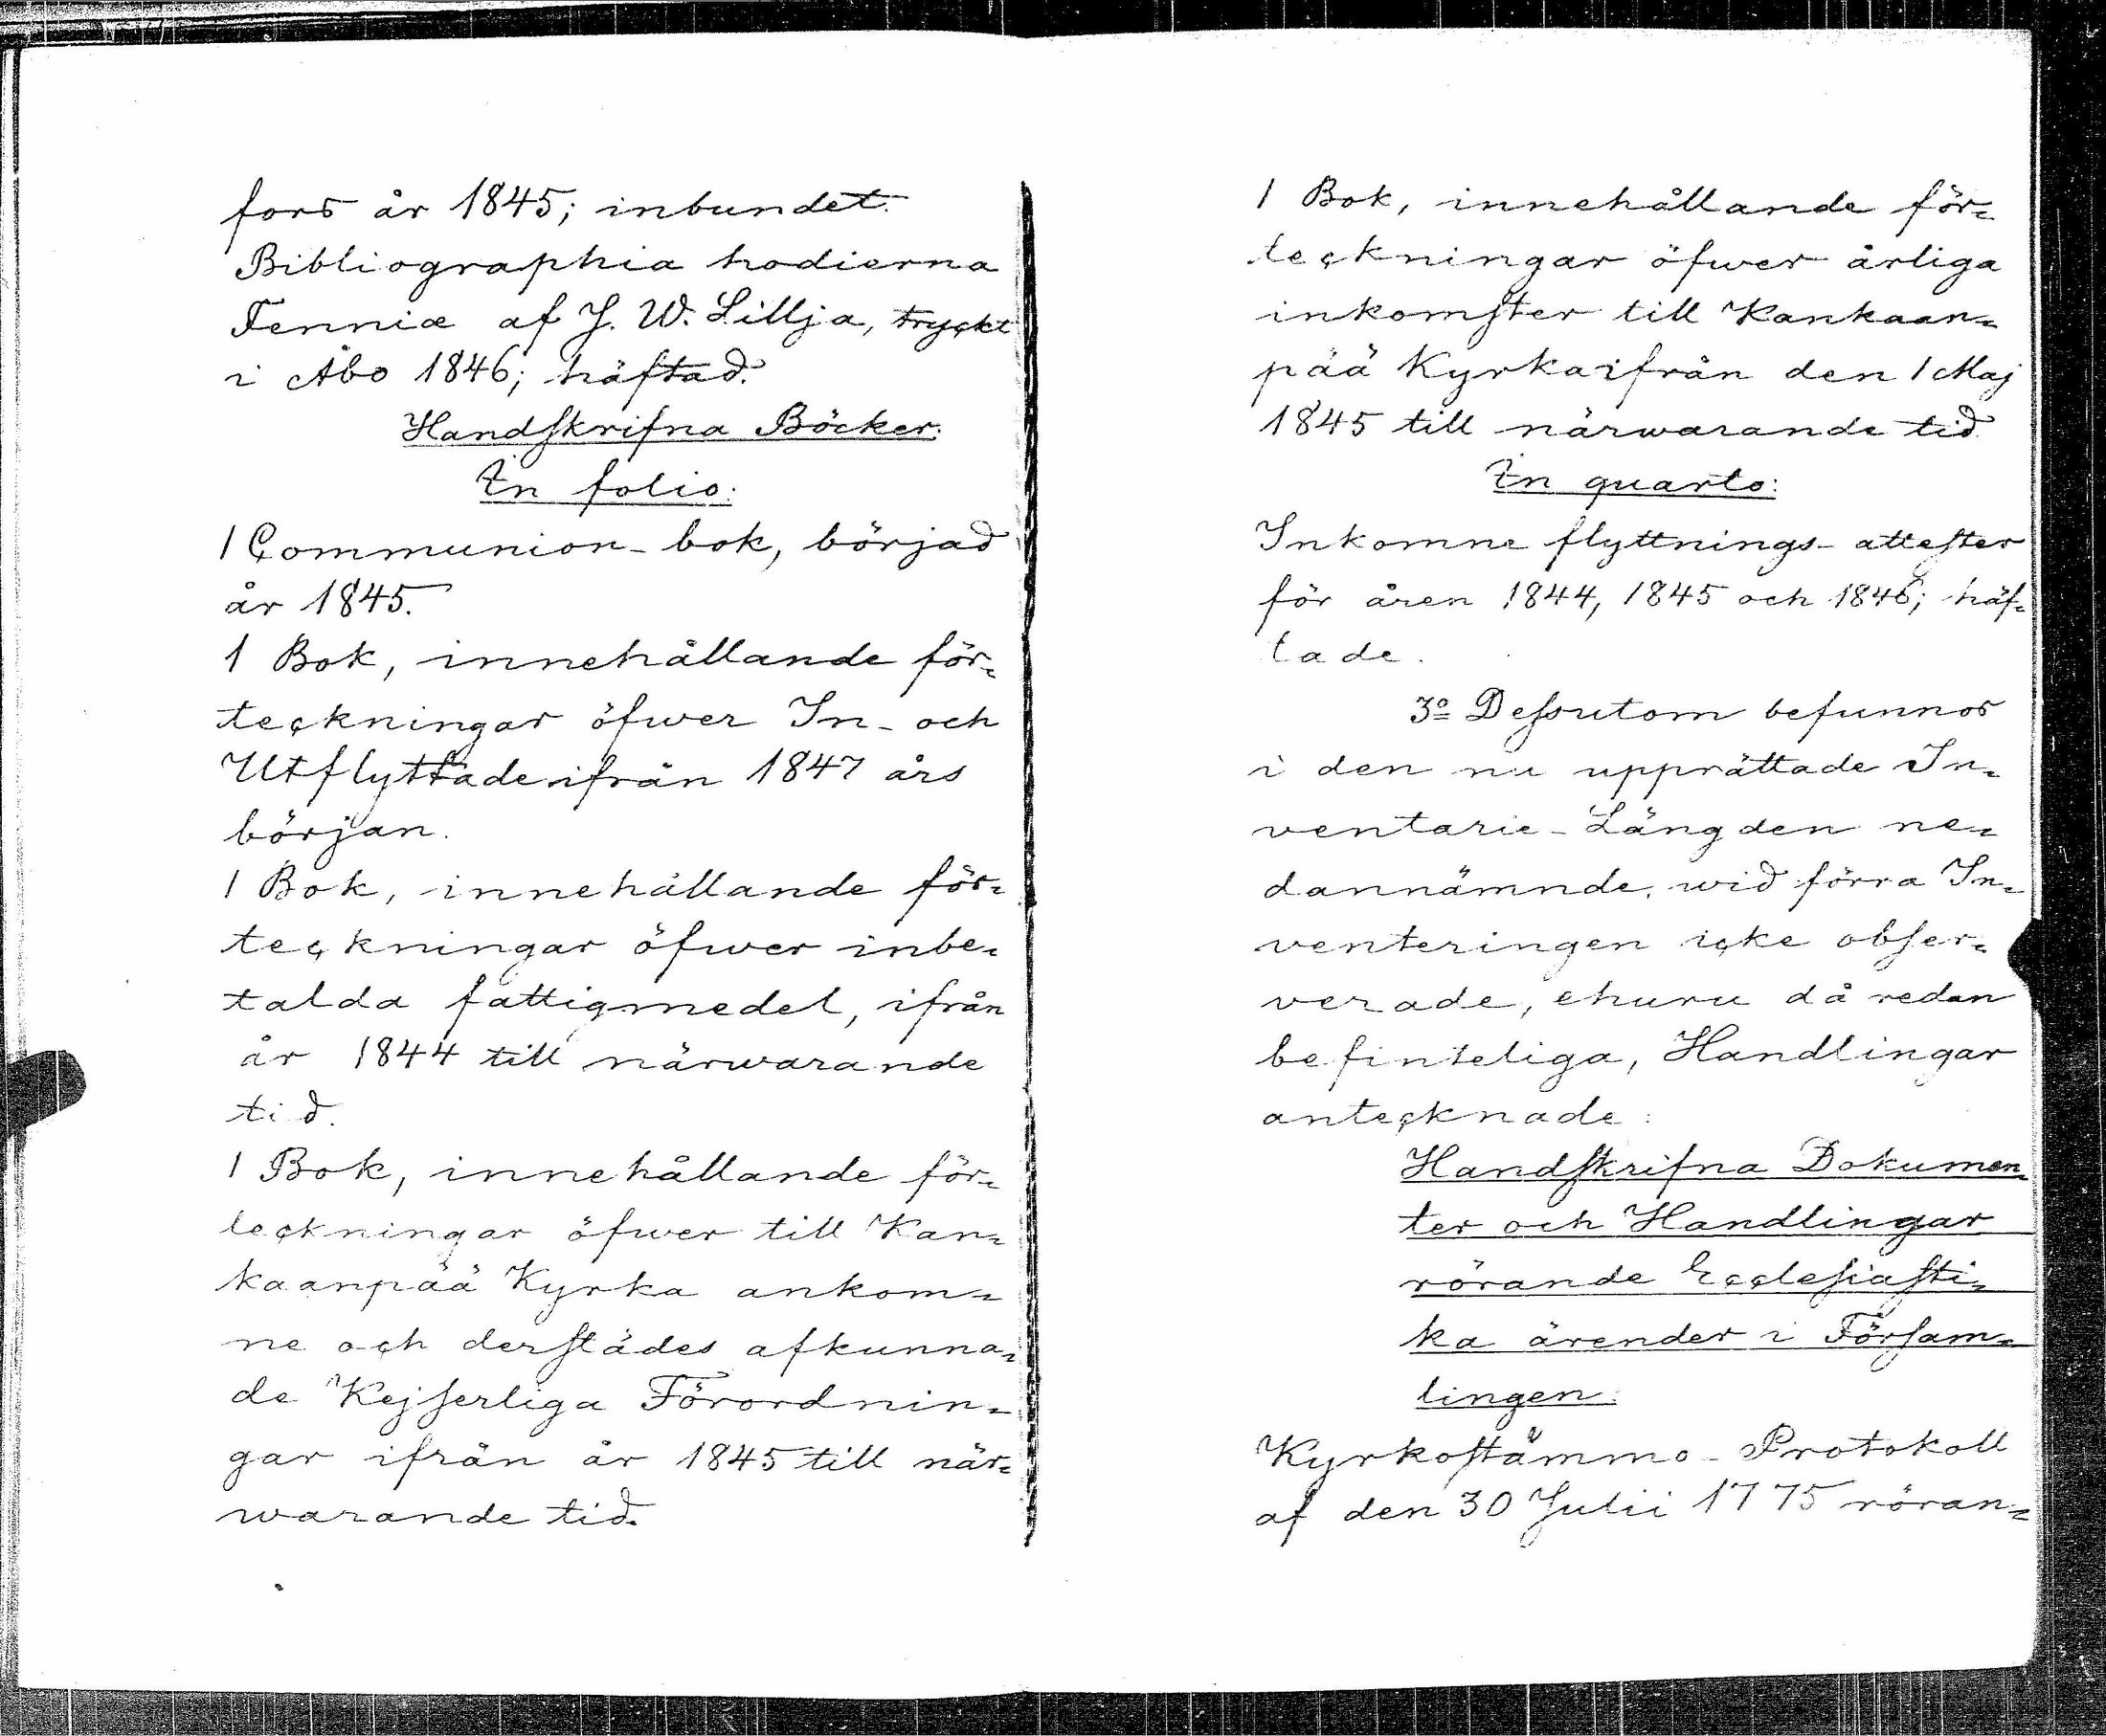 fors år 1845; inbundet.
Bibliographia hodierna
Fenniæ af J. W. Lillja, tryckt
i Åbo 1846; häftad.
Handskrifna Böcker:
In folio:
1 Communion-bok, börjad
år 1845.
1 Bok, innehållande för=
teckningar öfwer In- och
Utflyttade ifrån 1847 års
början.
1 Bok, innehållande för=
teckningar öfwer inbe=
talda fattigmedel, ifrån
år 1844 till närwarande
tid.
1 Bok, innehållande för=
teckningar öfwer till Kan=
kaanpää Kyrka ankom=
ne och derstädes afkunna=
de Kejserliga Förordnin=
gar ifrån år 1845 till när=
warande tid.
1 Bok, innehållande för=
teckningar öfwer årliga
inkomster till Kankaan=
pää Kyrka ifrån den 1 Maj
1845 till närwarande tid
In quarto:
Inkomne flyttnings-attester
för åren 1844, 1845 och 1846; häf=
tade.
3o Dessutom befunnos
i den nu upprättade In=
ventarie-Längden ne=
dannämnde, wid förra In=
venteringen icke obser=
verade, ehuru då redan
befinteliga, Handlingar
antecknade:
Handskrifna Dokumen=
ter och Handlingar
rörande Ecclesiasti=
ka ärender i Försam=
lingen:
Kyrkostämmo-Protokoll
af den 30 Julii 1775 röran=